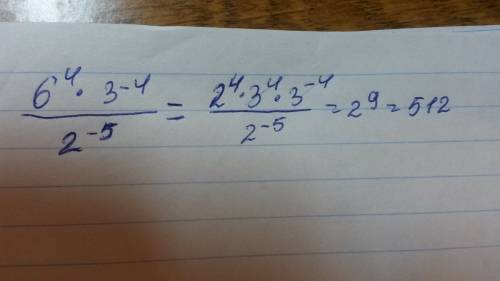 6⁴ · 3⁻⁴ / 2⁻⁵ = 2⁴ · 3⁴ · 3⁻⁴ / 2⁻⁵ = 2⁹ = 512